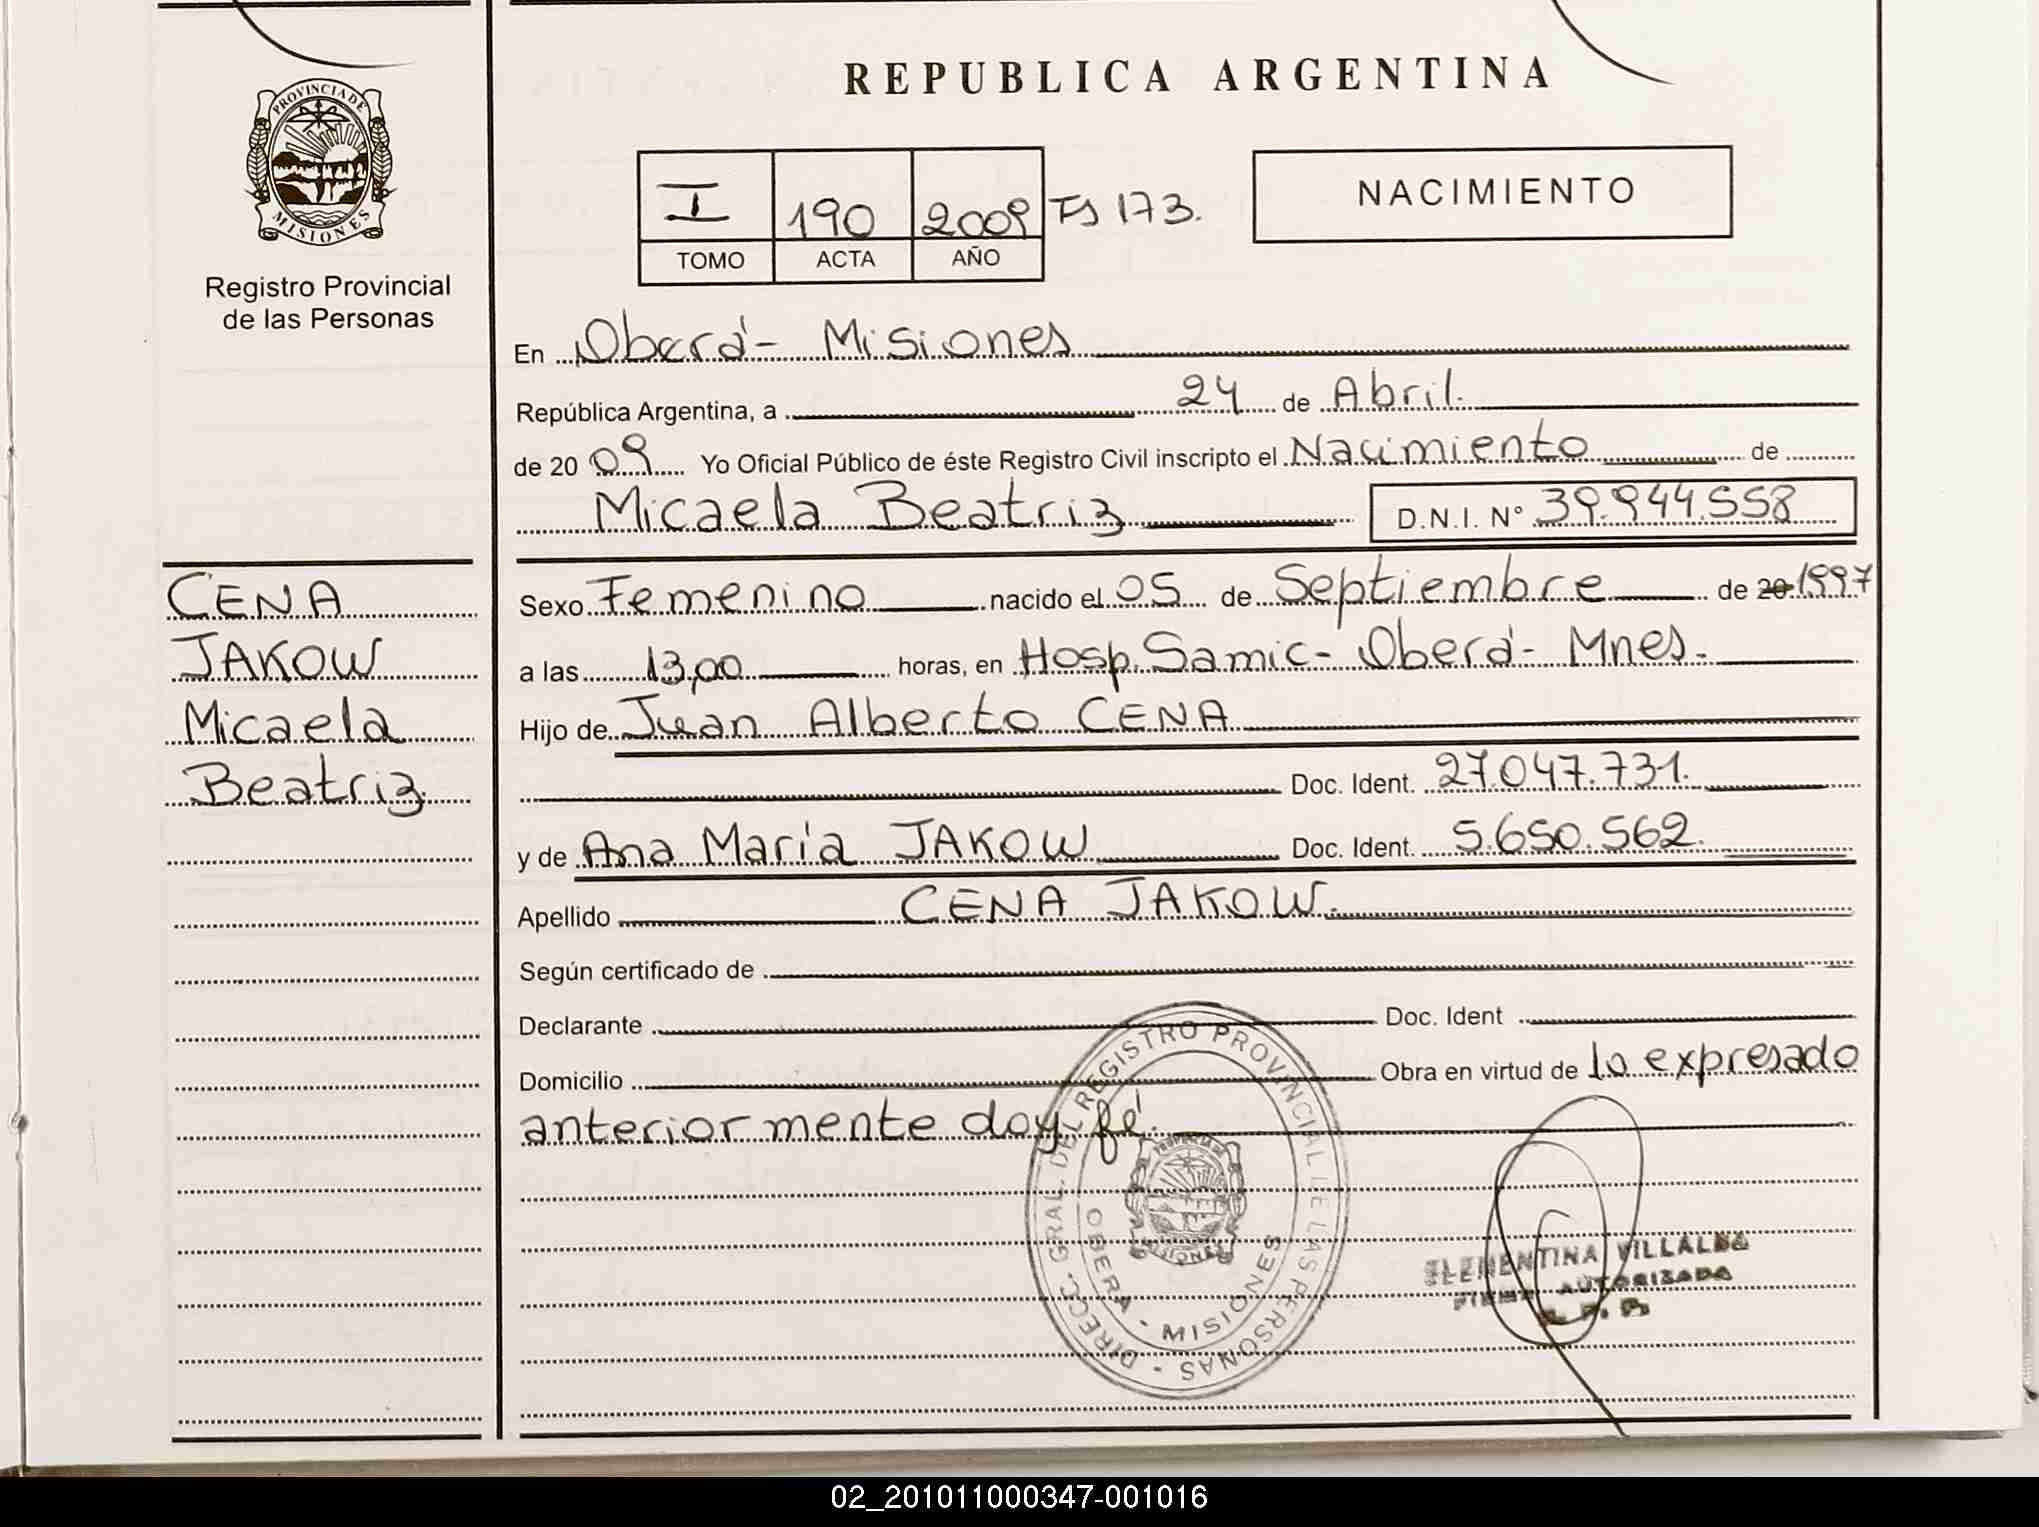 REPUBLICA ARGENTINA
PROVINCIA DE
MISIONES
Registro Provincial
de las Personas
I 190 2009 Fs 173.
TOMO ACTA AÑO
NACIMIENTO
En Oberá - Misiones
República Argentina, a 24 de Abril.
de 20 09 Yo Oficial Público de éste Registro Civil inscripto el Nacimiento de
Micaela Beatriz D.N.I. N° 39.944.558
CENA
JAKOW
Micaela
Beatriz
Sexo Femenino nacido el 05 de Septiembre de 20 1997
a las 13,00 horas, en Hosp. Samic - Oberá - Mnes.
Hijo de Juan Alberto CENA
Doc. Ident. 27.047.731.
y de Ana María JAKOW Doc. Ident. 5.650.562.
Apellido CENA JAKOW.
Según certificado de
Declarante Doc. Ident
Domicilio Obra en virtud de lo expresado
anteriormente doy fé.
DIRECC. GRAL. DEL REGISTRO PROVINCIAL DE LAS PERSONAS -
OBERA - MISIONES
MISIONES
CLEMENTINA VILLALBA
FIRMA AUTORIZADA
02_201011000347-001016